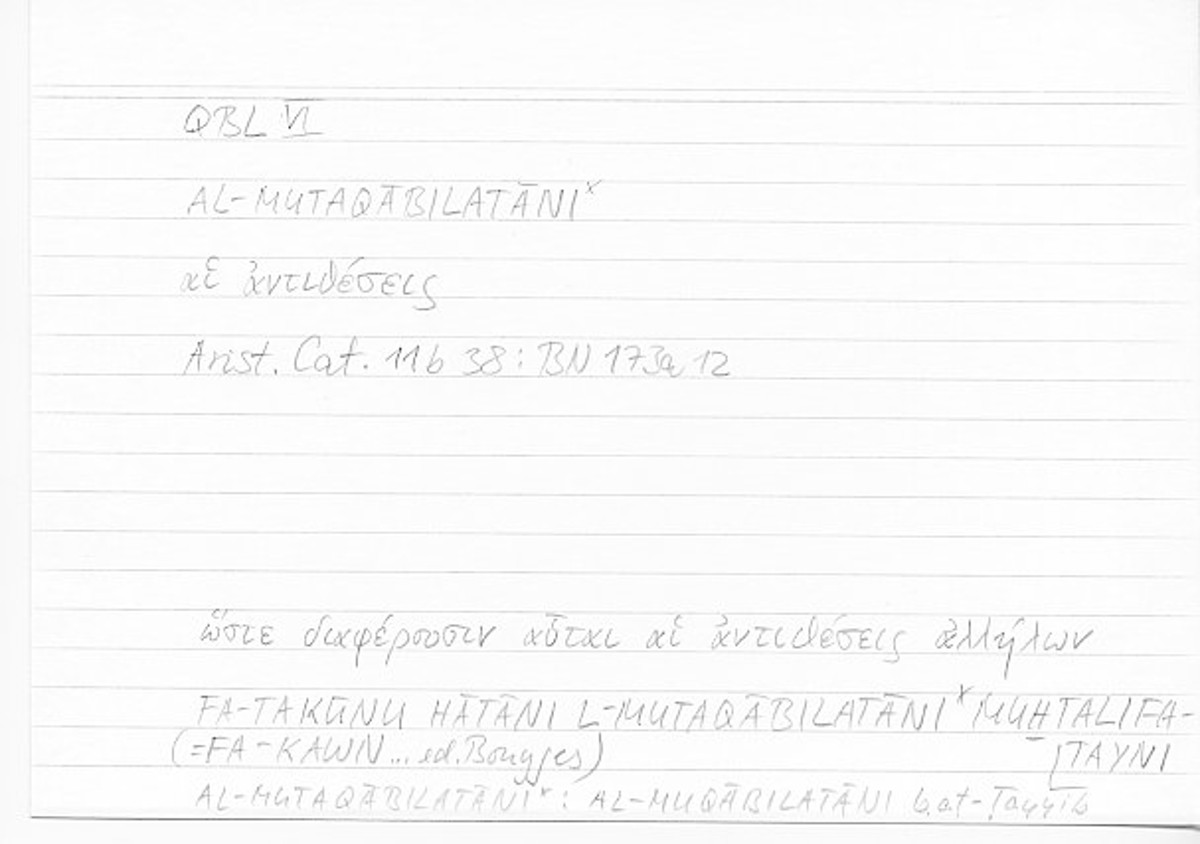 QBL VI
AL-MUTAQĀBILATĀNIˣ
αἱ ἀντιθέσεις
Arist. Cat. 11b 38 : BN 173a 12
ὥστε διαφέρουσιν αὗται αἱ ἀντιθέσεις ἀλλήλων
FA-TAKŪNU HĀTĀNI L-MUTAQĀBILATĀNIˣ MUḪTALIFA-
(=FA-KAWN... ed. Bouyges) TAYNI
AL-MUTAQĀBILATĀNIˣ : AL-MUQĀBILATĀNI b. aṭ-Ṭayyib